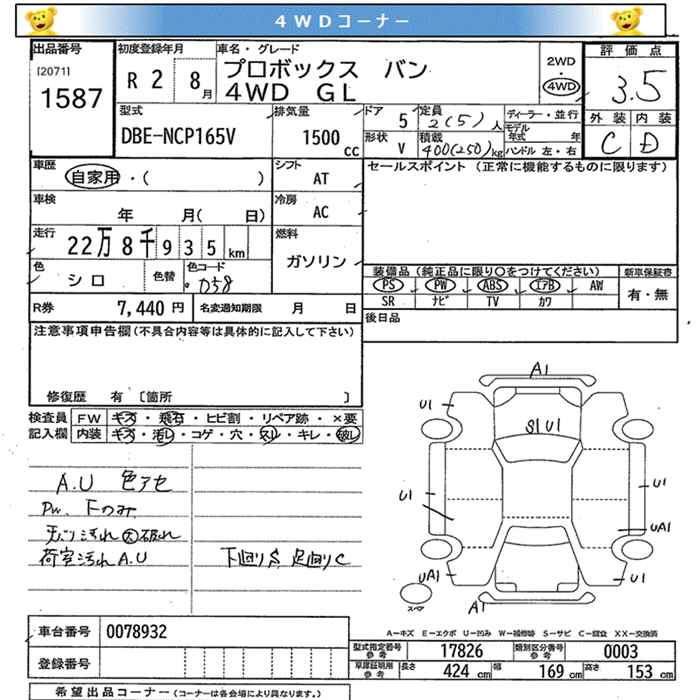 4WDコーナー
出品番号
[2071]
1587
初度登録年月
R 2 8月
車名・グレード
プロボックス バン
4WD GL
2WD
・
4WD
評価点
3.5
外装 内装
C D
型式
DBE-NCP165V
排気量
1500 cc
ドア
5
定員
2(5)人
ディーラー・並行
形状
V
積載
400(250)kg
モデル年式 年
ハンドル 左・右
車歴
自家用・( )
シフト
AT
セールスポイント (正常に機能するものに限ります)
車検
年 月( 日)
冷房
AC
走行
22万8千935km
燃料
ガソリン
色
シロ
色替
色コード
058
装備品(純正品に限り○をつけてください)
新車保証書
PS PW ABS エアB AW
有・無
SR ナビ TV カワ
R券 7,440円
名変通知期限 月 日
後日品
注意事項申告欄(不具合内容等は具体的に記入して下さい)
修復歴 有 [箇所 ]
検査員
記入欄
FW キズ・飛石・ヒビ割・リペア跡・×要
内装 キズ・汚レ・コゲ・穴・スレ・キレ・破レ
A.U 色アセ
PW.Fのみ
天バリ汚れ大破れ
荷室汚れA.U
下回りS 足回りC
A1
U1
S1 U1
U1
U1
UA1
UA1
U1
A1
スペア
A-キズ E-エクボ U-凹み W-補修跡 S-サビ C-腐食 XX-交換済
車台番号 0078932
型式指定番号
参考
17826
類別区分番号
参考
0003
登録番号
車庫証明用
参考
長さ 424cm 幅 169cm 高さ 153cm
希望出品コーナー(コーナーは各会場により異なります。)